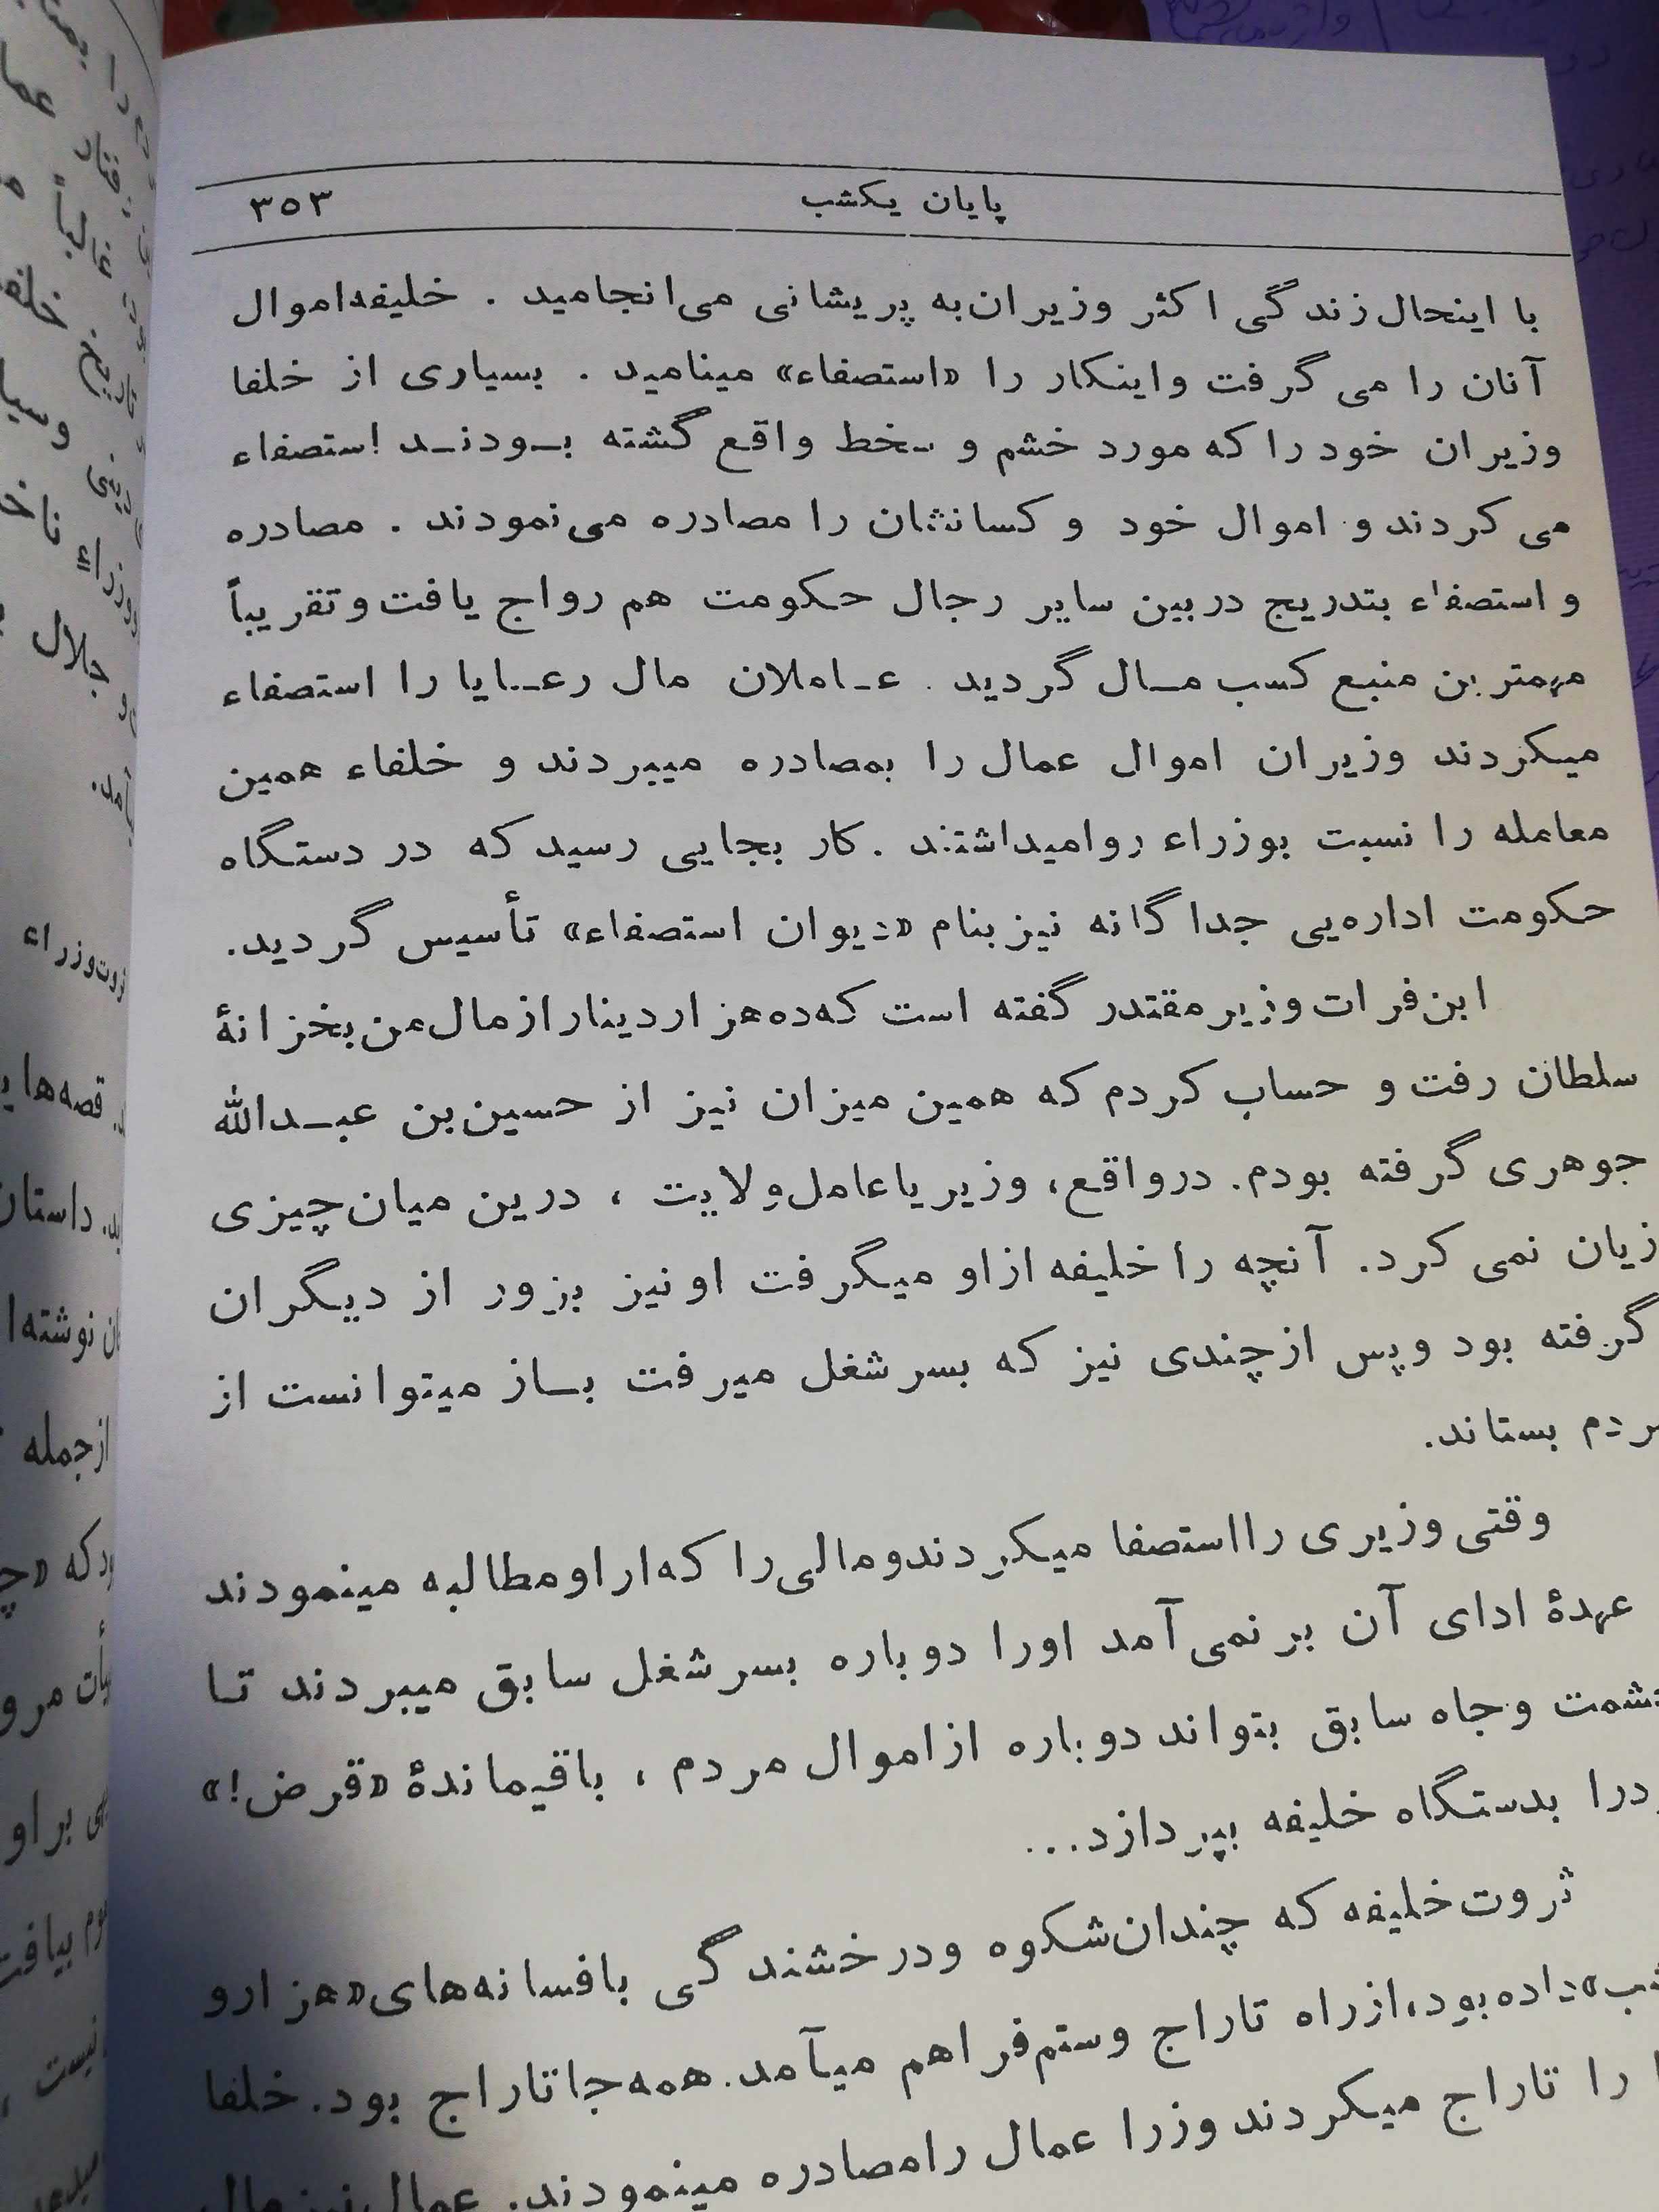 پایان یکشب
۳۵۳
با اینحال زندگی اکثر وزیران به پریشانی می‌انجامید . خلیفه اموال
آنان را می گرفت و اینکار را «استصفاء» مینامید . بسیاری از خلفا
وزیران خود را که مورد خشم و سخط واقع گشته بـودنـد استصفاء
می کردند و اموال خود و کسانشان را مصادره می‌نمودند . مصادره
و استصفاء بتدریج در بین سایر رجال حکومت هم رواج یافت و تقریباً
مهمترین منبع کسب مـال گردید . عـاملان مال رعـایا را استصفاء
میکردند وزیران اموال عمال را بمصادره میبردند و خلفاء همین
معامله را نسبت بوزراء روا میداشتند . کار بجایی رسید که در دستگاه
حکومت اداره‌یی جداگانه نیز بنام «دیوان استصفاء» تأسیس گردید.
ابن فرات وزیر مقتدر گفته است که ده هزار دینار از مال من بخزانهٔ
سلطان رفت و حساب کردم که همین میزان نیز از حسین بن عبـدالله
جوهری گرفته بودم. درواقع، وزیر یا عامل ولایت ، درین میان چیزی
زیان نمی کرد. آنچه را خلیفه از او میگرفت او نیز بزور از دیگران
گرفته بود و پس از چندی نیز که بسر شغل میرفت بـاز میتوانست از
مردم بستاند.
وقتی وزیری را استصفا میکردند و مالی را که از او مطالبه مینمودند
عهدهٔ ادای آن بر نمی‌آمد اورا دوباره بسر شغل سابق میبردند تـا
حشمت و جاه سابق بتواند دوباره از اموال مردم ، باقیماندهٔ «قرض!»
درا بدستگاه خلیفه بپردازد...
ثروت خلیفه که چندان شکوه و درخشندگی بافسانه‌های «هزار و
شب» داده بود، از راه تاراج و ستم فراهم میآمد. همه جا تاراج بود. خلفا
را تاراج میکردند وزرا عمال را مصادره مینمودند. عمال نیز مال